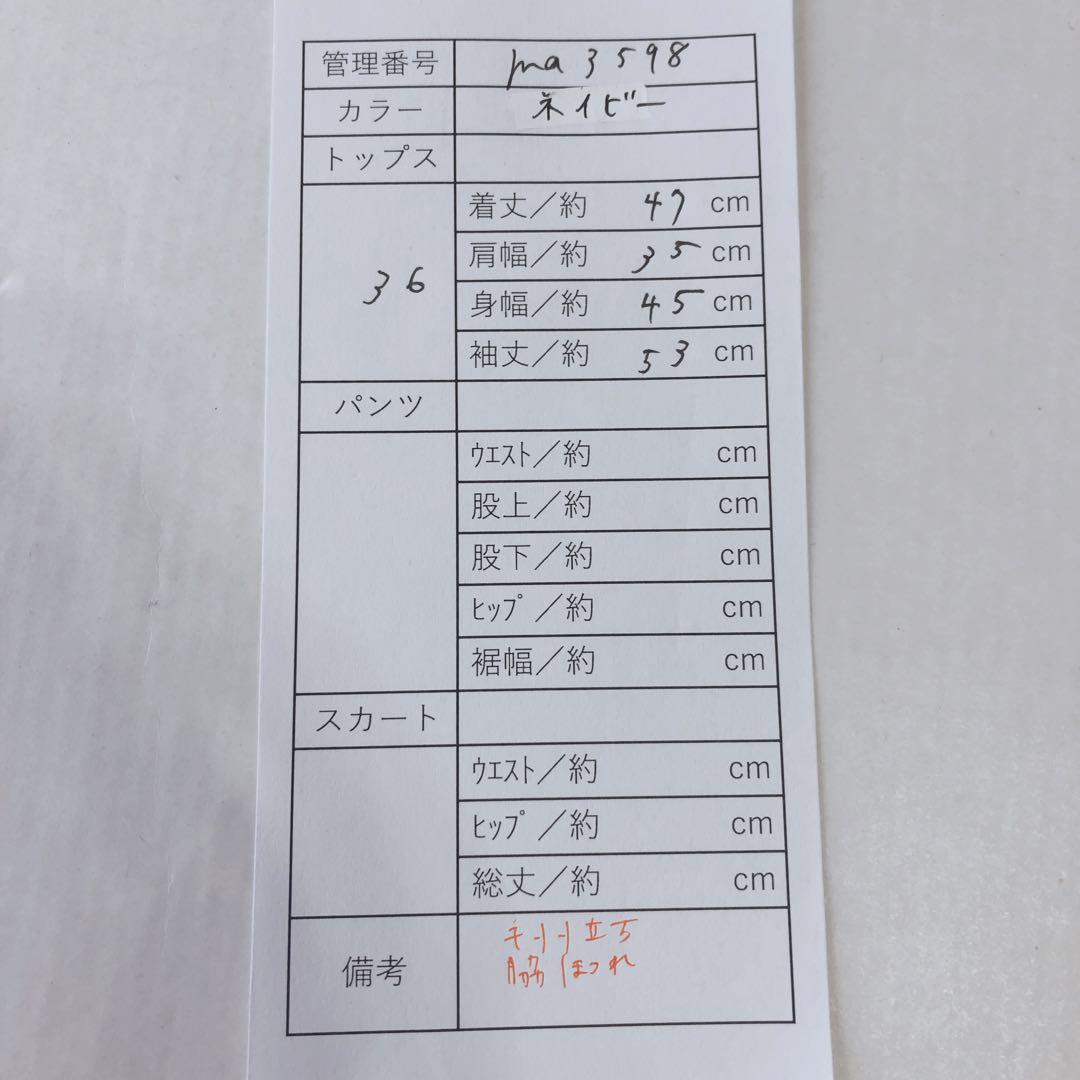 管理番号 ma3598
カラー ネイビー
トップス
36
着丈／約 47 cm
肩幅／約 35 cm
身幅／約 45 cm
袖丈／約 53 cm
パンツ
ｳｴｽﾄ／約 cm
股上／約 cm
股下／約 cm
ﾋｯﾌﾟ／約 cm
裾幅／約 cm
スカート
ｳｴｽﾄ／約 cm
ﾋｯﾌﾟ／約 cm
総丈／約 cm
備考
立ち
脇ほつれ